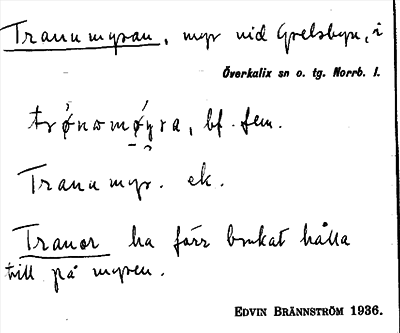 Tranumyran, myr vid Grelsbyn, i
Överkalix sn o. tg. Norrb. l.
trǿnomǿyra, bf. fem.
Tranumyr. ek.
Tranor ha förr brukat hålla
till på myren.
EDVIN BRÄNNSTRÖM 1936.